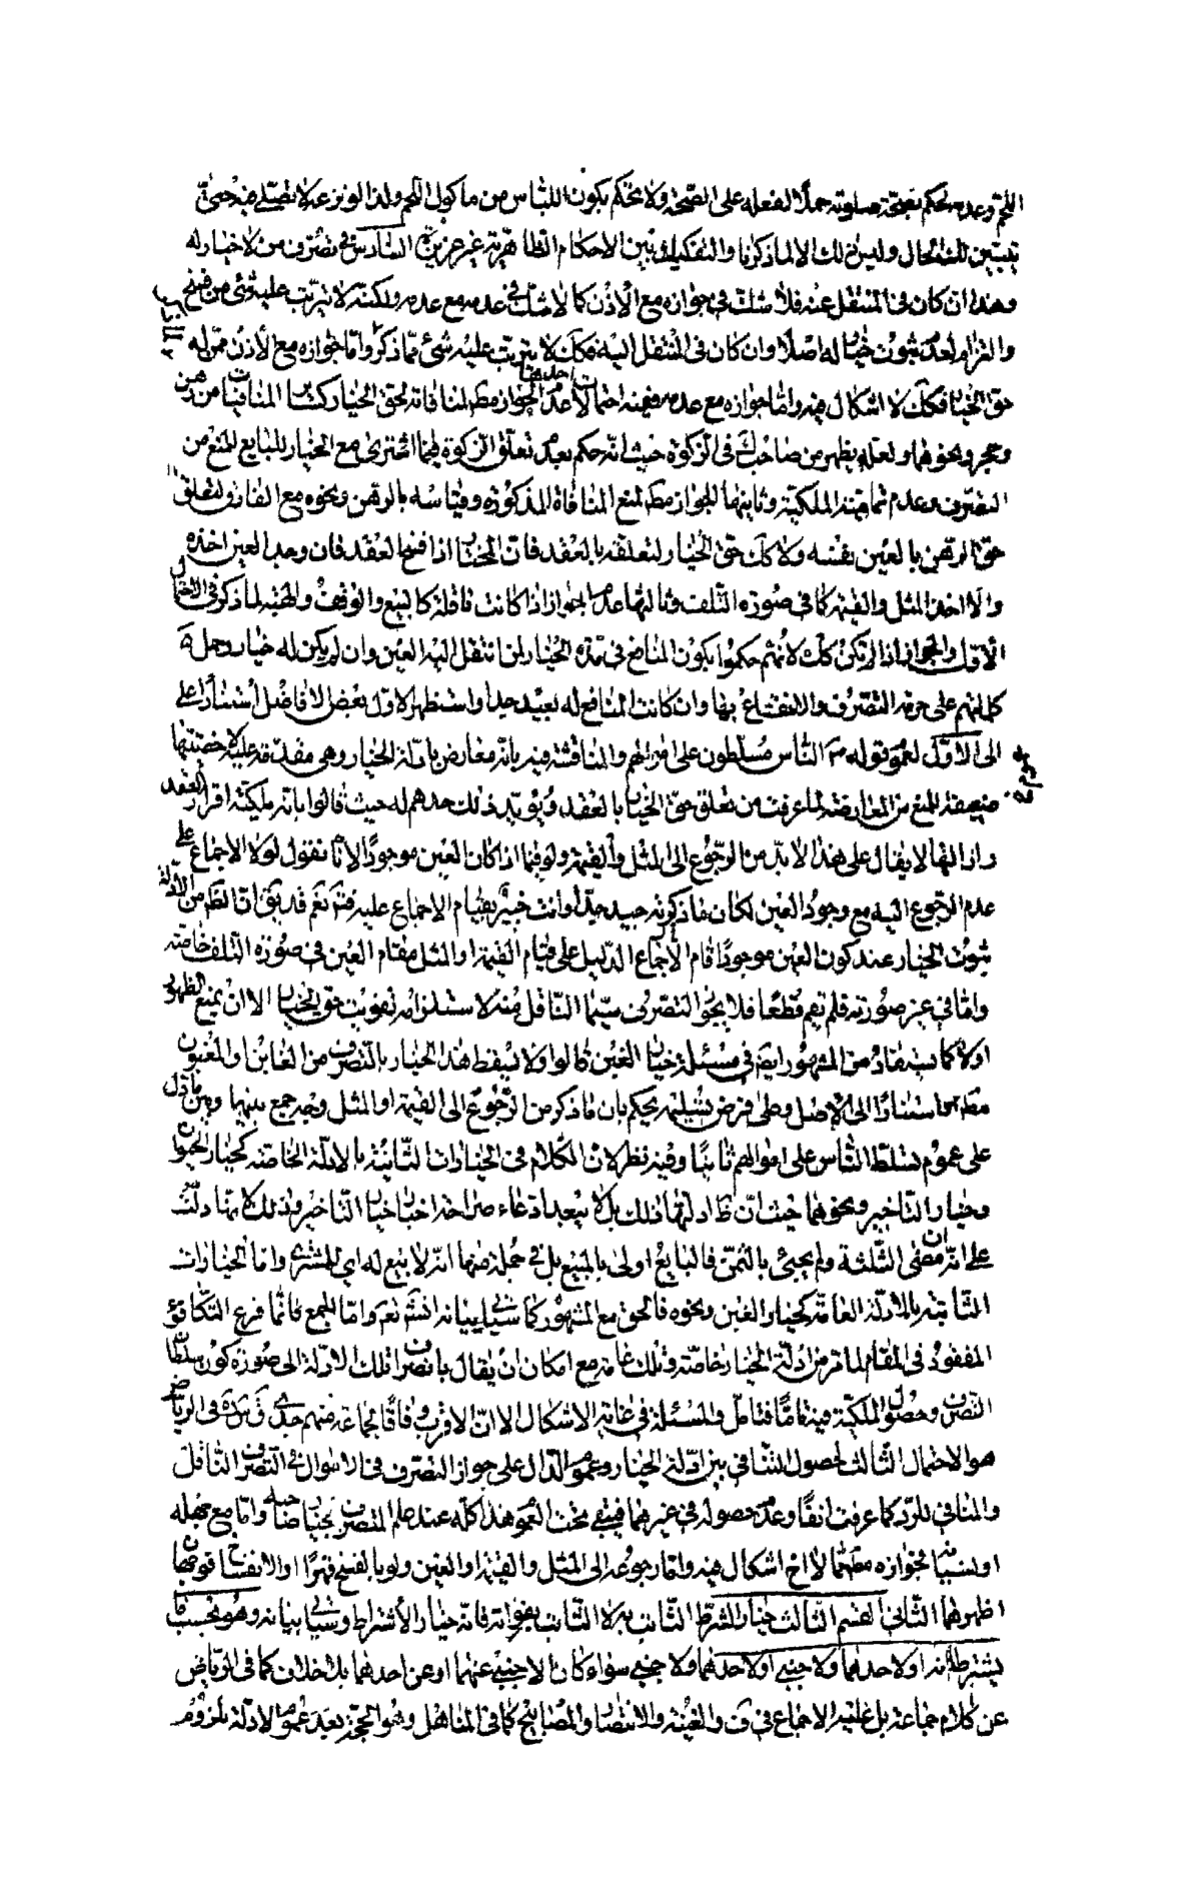 اللحم وعدمه نحكم بصحة صلوته حملا لفعله على الصحة ولا نحكم بكون اللباس من ماكول اللحم ولذا لو نزعه لا نصلي فيه حتى
يتبين لك الحال وليس ذلك الا لما ذكرنا والتفكيك بين الاحكام الظاهرية غير عزيز السادس في تصرف من لا خيار له
وهذا ان كان في المنتقل عنه فلا شك في جوازه مع الاذن كما لا شك في عدمه مع عدمه ولكنه لا يترتب عليه شئ من فسخ
والتزام لعدم ثبوت خيار له اصلا وان كان في المنتقل اليه فكك لا يترتب عليه شئ مما ذكر واما جوازه مع الاذن ممن له
حق الخيار فكك لا اشكال فيه واما جوازه مع عدمه ففيه احتمالات احدها عدم الجواز مط لمنافاته لحق الخيار كسائر المنافيات من رهن
وحجر ونحوهما ولعله يظهر من صاحب ك في الزكوة حيث انه حكم بعدم تعلق الزكوة فيما اشترى مع الخيار للبايع للمنع من
التصرف وعدم تمامية الملكية وثانيها الجواز مط لمنع المنافاة المذكورة وقياسه بالرهن ونحوه مع الفارق لتعلق
حق الرهن بالعين نفسه ولا كك حق الخيار لتعلقه بالعقد فان المختار اذا فسخ العقد فان وجد العين اخذه
والا اخذ المثل والقيمة كما في صورة التلف وثالثها عدم الجواز اذا كانت ناقلة كالبيع والوقف والهبة لما ذكر في الاحتمال
الاول والجواز اذا لم تكن كك لانهم حكموا بكون المنافع في مدة الخيار لمن انتقل اليه العين وان لم يكن له خيار وحمل
كلماتهم على حرمة التصرف والانتفاع بها وان كانت المنافع له بعيد جدا واستظهر الاول بعض الافاضل استنادا على
الى الاولى لعموم قوله ص الناس مسلطون على اموالهم والمناقشة فيه بانه معارض بادلة الخيار وهي مقدمة عليه لاخصيتها
ضعيفة للمنع من المعارضة لما عرفت من تعلق حق الخيار بالعقد ويؤيد ذلك حدهم له حيث قالوا بانه ملكية اقرار العقد
وازالتها لا يقال على هذا لا بد من الرجوع الى المثل والقيمة ولو فيما اذا كان العين موجودا لانا نقول لولا الاجماع على
عدم الرجوع اليه مع وجود العين لكان ما ذكرته جيد جدا وانت خبير بقيام الاجماع عليه فتم نعم قد يق ان الظ من الادلة
ثبوت الخيار عند كون العين موجودا قام الاجماع الدليل على قيام القيمة او المثل مقام العين في صورة التلف خاصة
واما في غير صورته فلم نعم قطعا فلا يجوز التصرف سيما الناقل منه لاستلزامه تفويت حق الخيار الا ان يمنع الظهور
اولا كما يستفاد من المشهور ايضا في مسئلة خيار الغبن قالوا ولا يسقط هذا الخيار بالتصرف من الغابن او المغبون
مط استنادا الى الاصل وعلى فرض تسليمه يحكم بان ما ذكر من الرجوع الى القيمة او المثل وجه جمع بينهما وبين ما دل
على عموم تسلط الناس على اموالهم ثانيا وفيه نظر لان الكلام في الخيارات الثابتة بالادلة الخاصة كخيار الحيوان
وخيار التاخير ونحوهما حيث ان ظ ادلتها ذلك بل لا يبعد ادعاء صراحة اخبار خيار التاخير وذلك لانها دلت
على انه ان مضى الثلثة ولم يجئ بالثمن فالبايع اولى بالمبيع بل في جملة منها انه لا بيع له اي للمشتري واما الخيارات
الثابتة بالادلة العامة كخيار الغبن ونحوه فالحق مع المشهور كما سيأتي بيانه انشاء نعم واما الجمع فانما فرع التكافؤ
المفقود في المقام لما مر من ادلة الخيار خاصة وتلك عامة مع امكان ان يقال بانصراف تلك الادلة الى صورة كون سلطان
التصرف وحصول الملكية فيه تاما فتامل والمسئلة في غاية الاشكال الا ان الاقرب وفاقا لجماعة منهم جدي في الرياض
هو الاحتمال الثالث لحصول التنافي بين ادلة الخيار وعموم الدال على جواز التصرف في الاموال في التصرف الناقل
والمنافي للرد كما عرفت انفا وعدم حصوله في غيرهما فيبقى تحت العموم هذا كله عند علم المتصرف بخيار صاحبه واما مع جهله
او نسيانه فجوازه مما لا اشكال فيه واما رجوعه الى المثل والقيمة او العين ولو بالفسخ قهرا او الانفساخ فوجهان
اظهرهما الثاني القسم الثالث خيار الشرط الثابت به لا الثابت بفواته فانه خيار الاشتراط وسياتي بيانه وهو بحسب ما
يشترطانه او لاحدهما ولاجنبي او لاحدهما ولاجنبي سواء كان الاجنبي عنهما او عن احدهما بلا خلاف كما في الرياض
عن كلام جماعة بل عليه الاجماع في ف والغنية والانتصار والمصابيح كما في المناهل وهو الحجة بعد عموم الادلة بلزوم